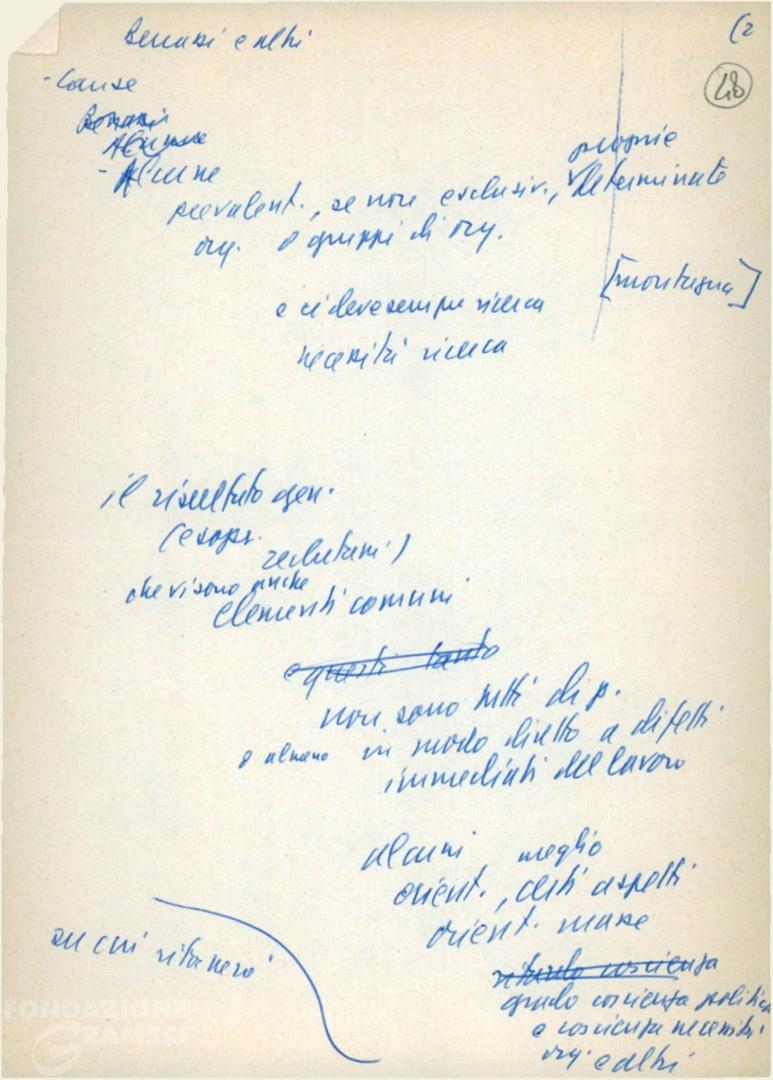 Benassi e altri
(2
48
- Cause
Benassi
Alcune
- Alcune
proprie
prevalent., se non esclusiv., determinate
org. o gruppi di org.
[montagna]
e ci deve sempre ricerca
necessità ricerca
il risultato gen.
(e sopr.
reclutam.)
che vi sono anche
elementi comuni
e questi tanto
non sono tutti di p.
o almeno in modo diretto a difetti
immediati del lavoro
alcuni meglio
orient., certi aspetti
orient. masse
su cui ritornerò
ritardo coscienza
grado coscienza politica
e coscienza necessità
org. e altri
FONDAZIONE
GRAMSCI